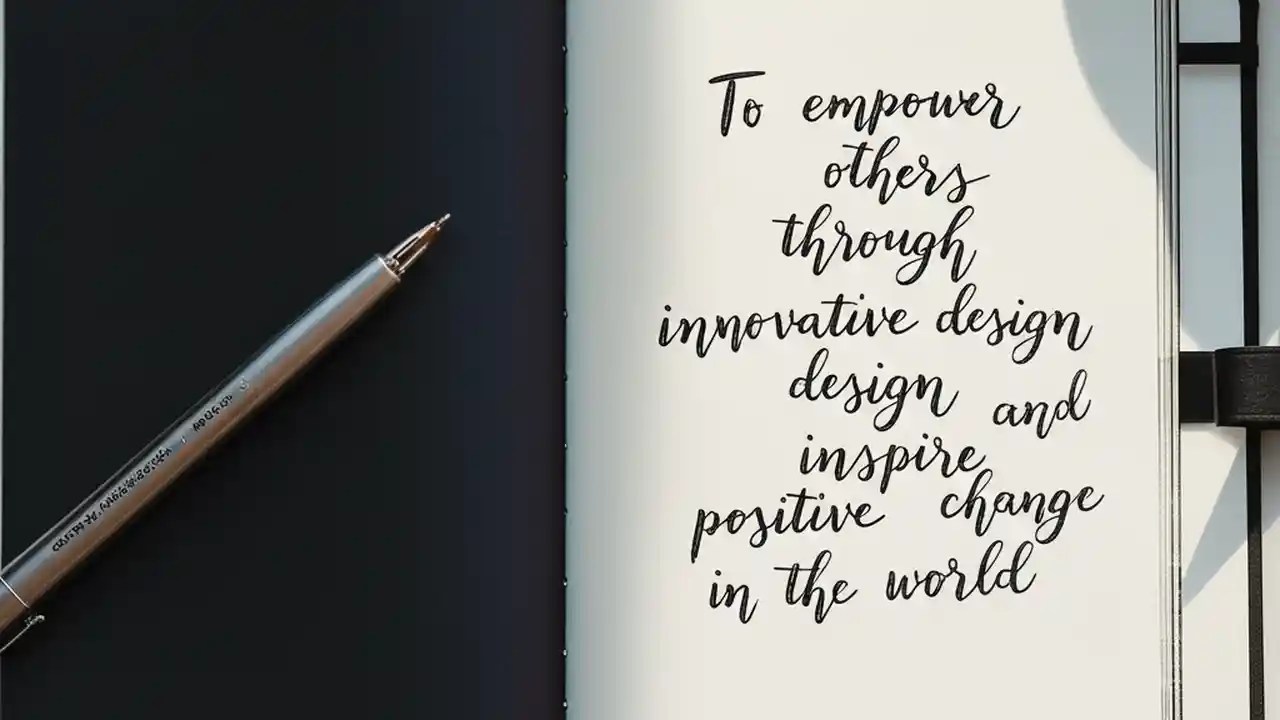 To empower
others
through
innovative design
design and
inspire
positive change
in the world